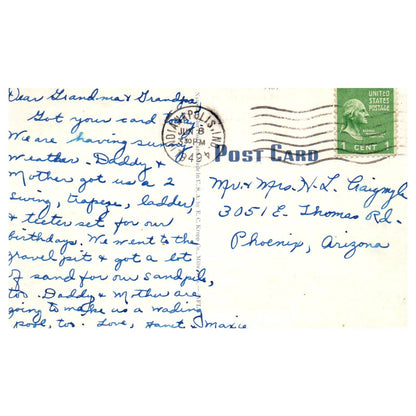 Dear Grandma & Grandpa
Got your card today.
We are having sunny
weather. Daddy &
Mother got us a 2
swing, trapeze, ladder,
& teeter set for our
birthdays. We went to the
gravel pit & got a lot
of sand for our sandpile,
too. Daddy & Mother are
going to make us a wading
pool, too. Love, Janet & Maxie
INDIANAPOLIS, IND.
JUN 8
30 PM
1949
UNITED STATES
POSTAGE
1 CENT 1
POST CARD
Mr. & Mrs. H. L.
3051 E. Thomas Rd.
Phoenix, Arizona